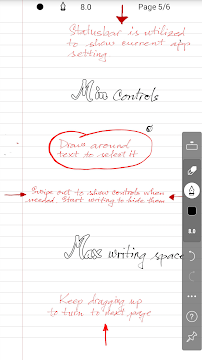 8.0 Page 5/6
Statusbar is utilized
to show current app
setting
Min Controls
Draw around
text to select it
Swipe out to show controls when
needed. Start writing to hide them
8.0
Max writing space
Keep dragging up
to turn to next page